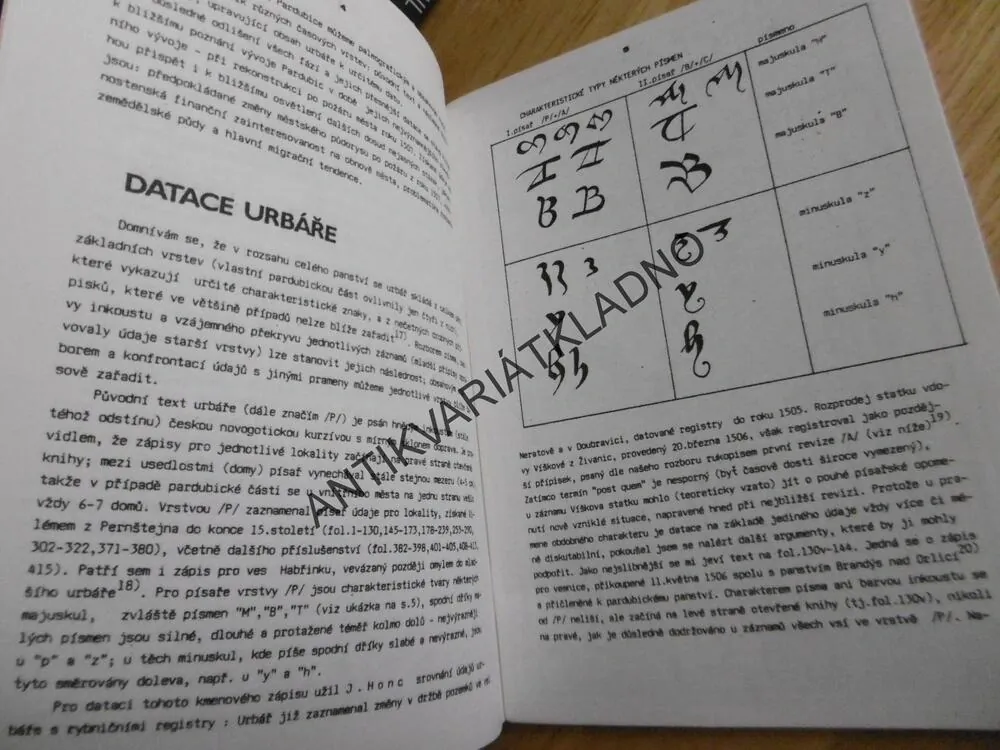 4
Pardubice můžeme paleograficky a
různých časových vrstev; původní text a následné
, upravující obsah urbáře k určitému datu.
důsledné odlišení všech fází a jejich přesnější datace se
k bližšímu poznání vývoje Pardubic v době jejich nejvýznamnějšího
ního vývoje - při rekonstrukci po požáru města roku 1507.
hou přispět i k bližšímu osvětlení dalších dosud nejasných
jsou: předpokládané změny městského půdorysu po požáru z roku 1507,
nostenská finanční zainteresovanost na obnově města, problematika
zemědělské půdy a hlavní migrační tendence.
DATACE URBÁŘE
Domnívám se, že v rozsahu celého panství se urbář skládá z
základních vrstev (vlastní pardubickou část ovlivnily jen čtyři z nich),
které vykazují určité charakteristické znaky, a z nečetných drobných při-
pisků, které ve většině případů nelze blíže zařadit17). Rozborem písma,
vy inkoustu a vzájemného překryvu jednotlivých záznamů (mladší přípisy
vovaly údaje starší vrstvy) lze stanovit jejich následnost; obsahovým
borem a konfrontací údajů s jinými prameny můžeme jednotlivé vrstvy
sově zařadit.
Původní text urbáře (dále značím /P/) je psán hnědým inkoustem (stále
téhož odstínu) českou novogotickou kurzívou s mírným sklonem doprava. Je
vidlem, že zápisy pro jednotlivé lokality začínají na pravé straně otevřené
knihy; mezi usedlostmi (domy) písař vynechával stále stejnou mezeru (4-5 cm),
takže v případě pardubické části se u vnitřního města na jednu stranu vešlo
vždy 6-7 domů. Vrstvou /P/ zaznamenal písař údaje pro lokality, získané Vi-
lémem z Pernštejna do konce 15.století (fol.1-130,145-173,178-239,253-290,
302-322,371-380), včetně dalšího příslušenství (fol.382-398,401-405,408-413,
415). Patří sem i zápis pro ves Habřinku, vevázaný později omylem do mlad-
šího urbáře18). Pro písaře vrstvy /P/ jsou charakteristické tvary některých
majuskul, zvláště písmen "M","B","T" (viz ukázka na s.5), spodní dříky
lých písmen jsou silné, dlouhé a protažené téměř kolmo dolů - nejvýrazněji
u "p" a "z"; u těch minuskul, kde píše spodní dříky slabé a nevýrazné, jsou
tyto směrovány doleva, např. u "y" a "h".
Pro dataci tohoto kmenového zápisu užil J.Honc srovnání údajů ur-
báře s rybničními registry : Urbář již zaznamenal změny v držbě pozemků ve
5
CHARAKTERISTICKÉ TYPY NĚKTERÝCH PÍSMEN
I.písař /P/+/A/
II.písař /B/+/C/
písmeno
majuskula "M"
majuskula "T"
majuskula "B"
minuskula "z"
minuskula "y"
minuskula "h"
Neratově a v Doubravici, datované registry do roku 1505. Rozprodej statku vdo-
vy Víškové z Živanic, provedený 20.března 1506, však registroval jako pozděj-
ší přípisek, psaný dle našeho rozboru rukopisem první revize /A/ (viz níže)19).
Zatímco termín "post quem" je nesporný (byť časově dosti široce vymezený),
u záznamu Víškova statku mohlo (teoreticky vzato) jít o pouhé písařské opome-
nutí nově vzniklé situace, napravené hned při nejbližší revizi. Protože u pra-
mene obdobného charakteru je datace na základě jediného údaje vždy více či mé-
ně diskutabilní, pokoušel jsem se nalézt další argumenty, které by ji mohly
podpořit. Jako nejslibnější se mi jeví text na fol.130v-144. Jedná se o zápis
pro vesnice, přikoupené 11.května 1506 spolu s panstvím Brandýs nad Orlicí20)
a přičleněné k pardubickému panství. Charakterem písma ani barvou inkoustu se
od /P/ neliší, ale začíná na levé straně otevřené knihy (tj.fol.130v), nikoli
na pravé, jak je důsledně dodržováno u záznamů všech vsí ve vrstvě /P/. Na-
ANTIKVARIÁTKLADNO